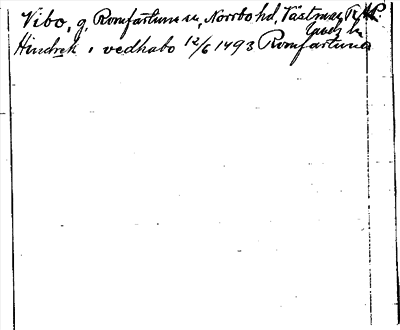 Vibo, g, Romfartuna sn, Norrbo hd, Västman
Hindrek i vedhabo 12/6 1493 Romfartuna